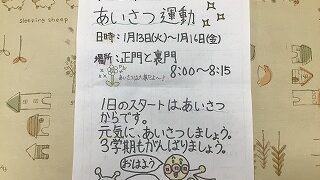 sleeping sheep
あいさつ運動
日時：1月13日(火)〜1月16日(金)
場所：正門と裏門
8:00〜8:15
あいさつは大事だよ〜！
1日のスタートは、あいさつ
からです。
元気に、あいさつしましょう。
3学期もがんばりましょう。
おはよう